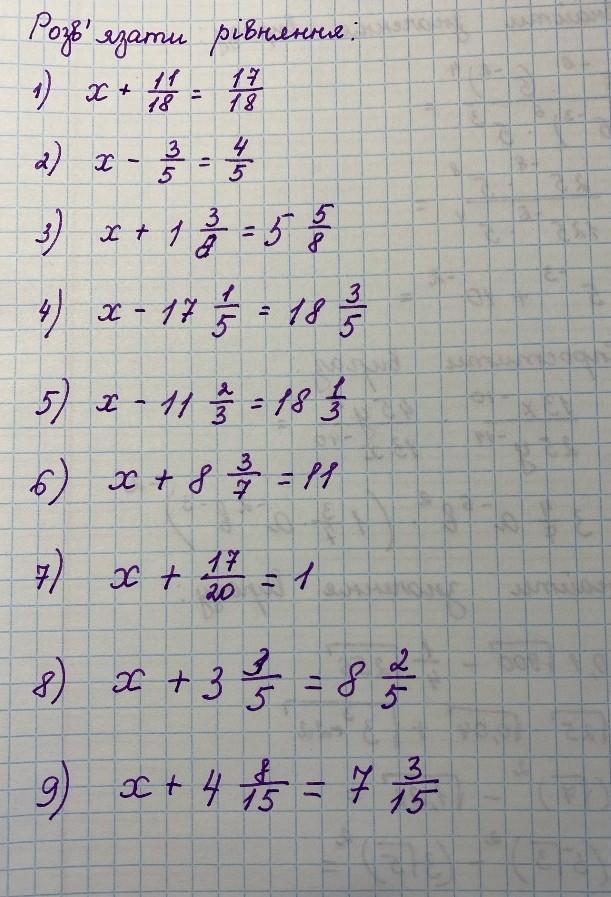 Розв'язати рівняння:
1) x + 11/18 = 17/18
2) x - 3/5 = 4/5
3) x + 1 3/8 = 5 5/8
4) x - 17 1/5 = 18 3/5
5) x - 11 2/3 = 18 1/3
6) x + 8 3/7 = 11
7) x + 17/20 = 1
8) x + 3 3/5 = 8 2/5
9) x + 4 8/15 = 7 3/15